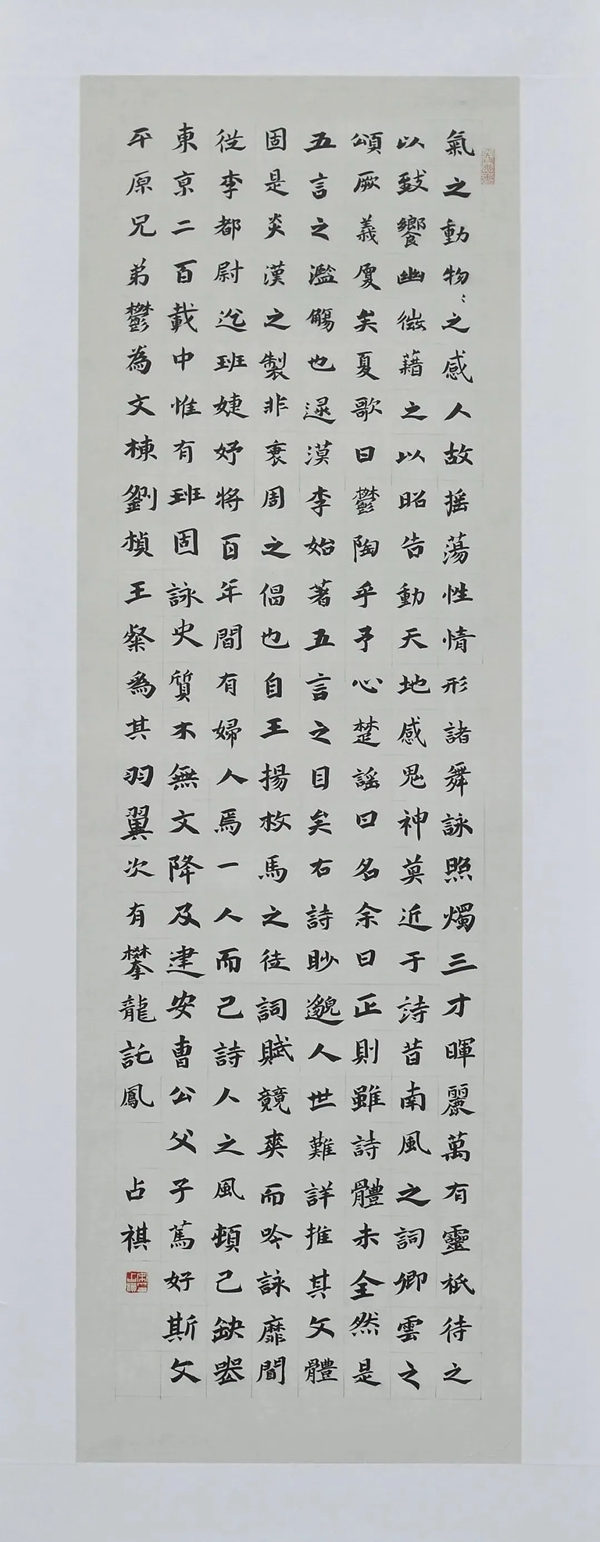 氣之動物〻之感人故摇蕩性情形諸舞詠照燭三才暉麗萬有靈祇待之
以致饗幽微藉之以昭告動天地感鬼神莫近于詩昔南風之詞卿雲之
頌厥義夐矣夏歌曰鬱陶乎予心楚謡曰名余曰正則雖詩體未全然是
五言之濫觴也逮漢李始著五言之目矣右詩眇邈人世難詳推其文體
固是炎漢之製非衰周之倡也自王揚枚馬之徒詞賦競爽而吟詠靡聞
從李都尉迄班婕妤將百年間有婦人焉一人而已詩人之風頓已缺喪
東京二百載中惟有班固詠史質木無文降及建安曹公父子篤好斯文
平原兄弟鬱為文棟劉楨王粲為其羽翼次有攀龍託鳳
占祺